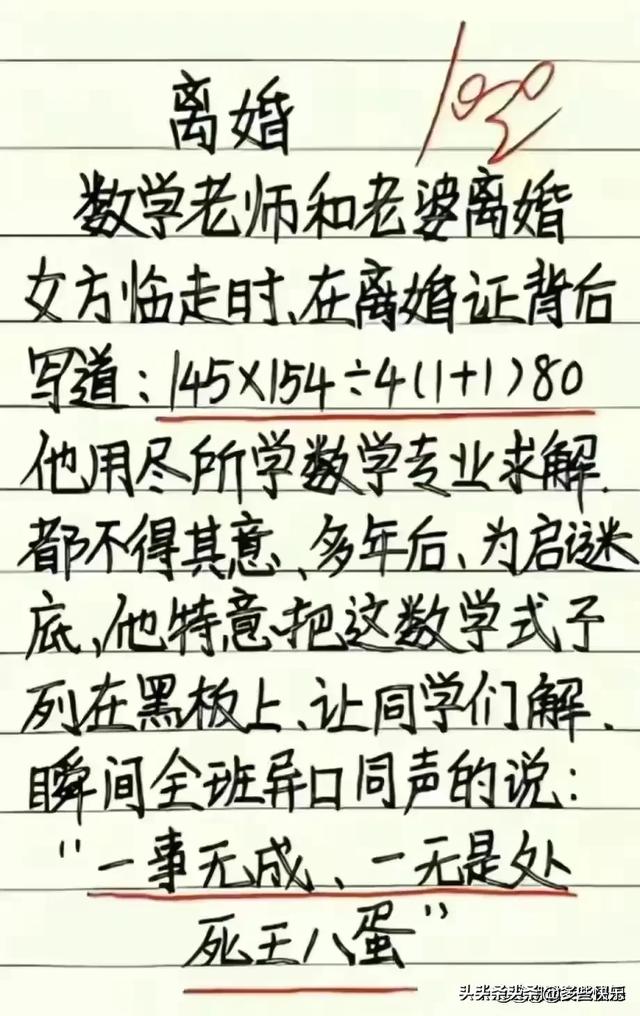 离婚
100
数学老师和老婆离婚
女方临走时、在离婚证背后
写道：145×154÷4(1+1)80
他用尽所学数学专业求解、
都不得其意、多年后、为启谜
底、他特意把这数学式子
列在黑板上、让同学们解、
瞬间全班异口同声的说：
“一事无成、一无是处
死王八蛋”